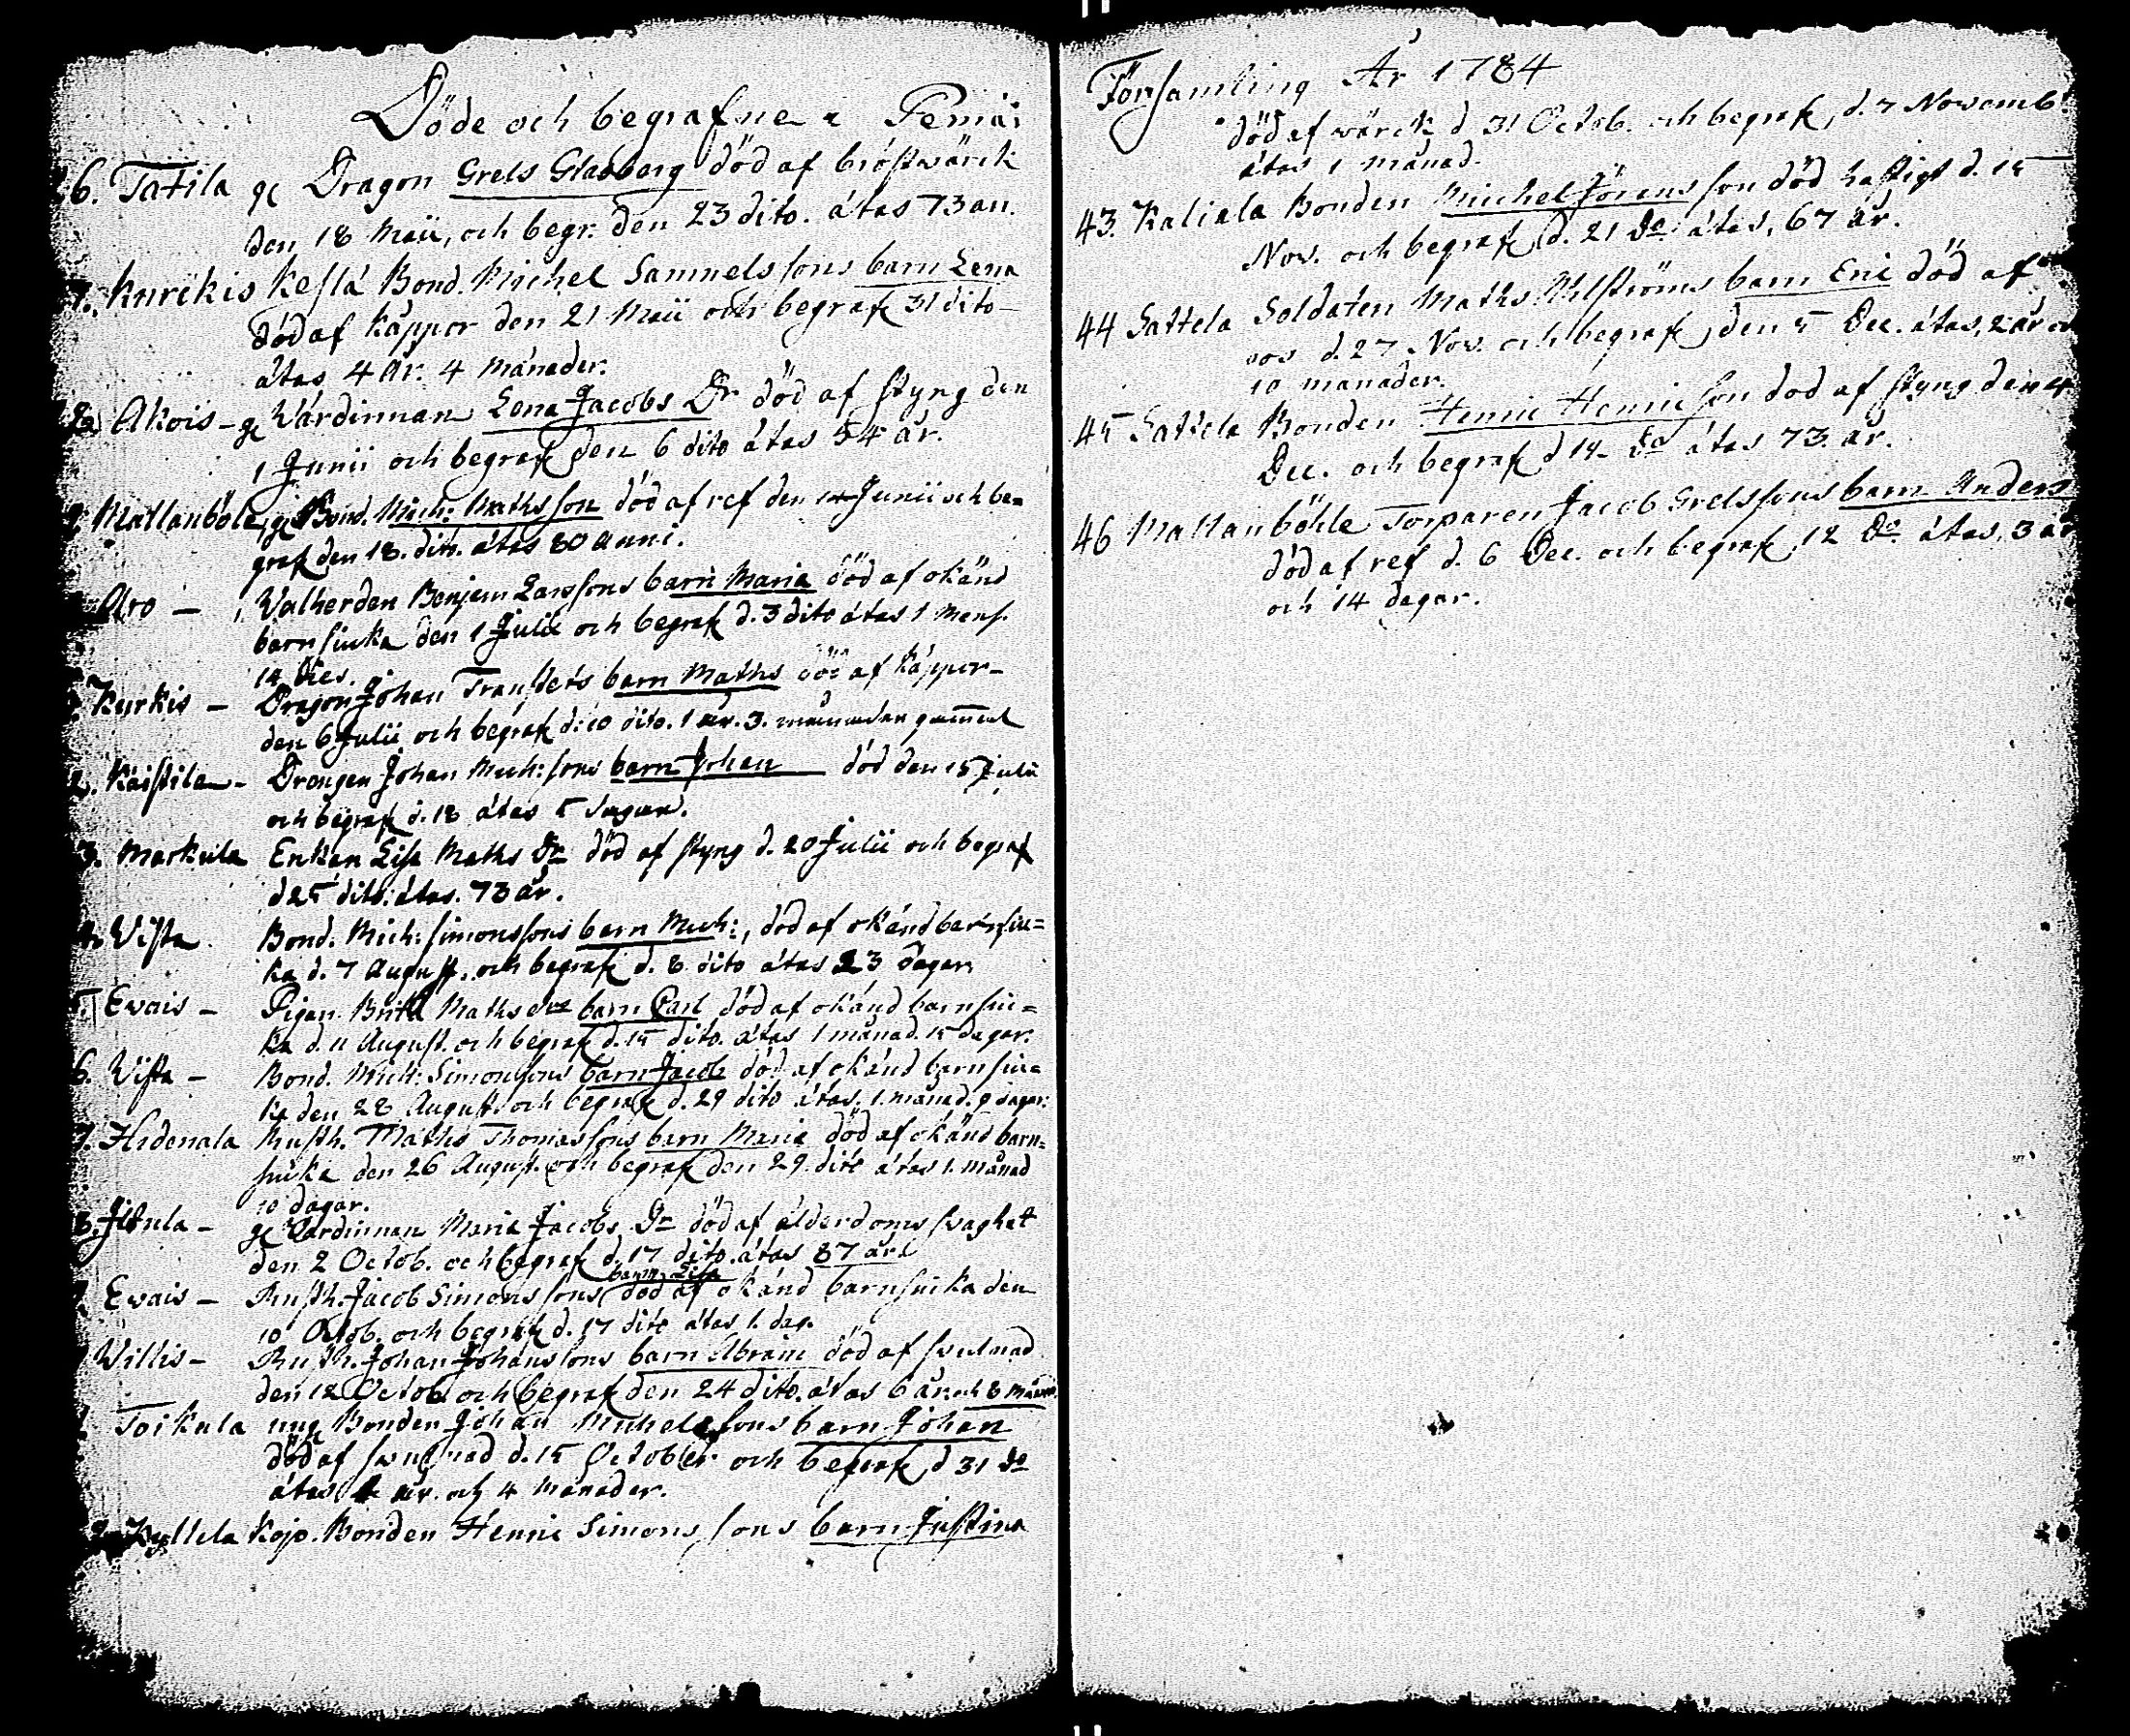 Döde och begrafne i Pemar
26. Tatila gl Dragon Grels Gladberg död af bröstwärck
den 18 Maii, och begr. den 23 dito. åtas 73 an.
7. Kurikis Keslä Bond. Michel Samuelssons barn Lena
död af Kåppor den 21 Maii och begrafz 31 dito
åtas 4 År. 4 Månader.
28 Akois - gl Wärdinnan Lena Jacobs Dr död af styng den
1 Junii och begrafz den 6 dito åtas 54 år.
9. Mattanböle, gl Bond. Mich: Mathsson död af ref den 14 Junii och be=
grafz den 18. dito. åtas 80 Anni.
Aro — Walherden Benjem Larssons barn Maria död af okänd
barnsiuka den 1 Julii och begrafz d. 3 dito åtas 1 Mens.
14 Dies.
Kurkis — Dragon Johan Transters barn Maths död af Kåppor
den 6 Julii och begrafz d: 10 dito. 1 år. 3. månader gammal
2. Kaistila - Drengen Johan Mich:sons barn Johan död den 15 Julii
och begrafz d. 18 åtas 5 dagar.
3. Markula Enkan Lisa Maths Dr död af styng d. 20 Julii och begraf
d 25 dito: åtas. 73 år.
4. Wista Bond. Mich: Simonssons barn Mich:, död af okänd barnsiu=
ka d. 7 August. och begrafz d. 8 dito åtas 23 dagar
5. Ewais — Pigan Brita Maths drs barn Carl död af okänd barnsiu=
ka d. 11 August. och begrafz d. 15 dito. åtas 1 månad. 15 dagar.
6. Wista — Bond. Mich: Simonssons barn Jacob död af okänd barnsiu=
ka den 28 August. och begrafz d. 29 dito åtas. 1. månad. 9 dagar:
7. Hidenala Rusth. Maths Thomassons barn Maria död af okänd barn=
siuka den 26 August. och begrafz den 29. dito åtas 1. månad
10 dagar.
8. Jutula — gl Wärdinnan Maria Jacobs Dr död af ålderdoms swaghet
den 2 Octob. och begrafz d. 17 dito. åtas 87 år.
Ewais — Rusth. Jacob Simonssons barn Lisa död af okänd barnsiuka den
10 Octob. och begrafz d. 17 dito åtas 1. dag.
Willis — Rusth. Johan Johanssons barn Abram död af swulnad
den 12 Octob. och begrafz den 24 dito. åtas 6 år och 8 mån
Toikula ung Bonden Johan Michelssons barn Johan
död af swulnad d. 15 October och begrafz d 31 do
åtas år. och 4 Månader.
2. Kyllela Kojo. Bonden Henric Simonssons barn Justina
Församling År 1784
död af wärck d 31 Octob. och begrafz, d. 7 Novemb:
åtas 1 månad.
43. Kaliala Bonden Michel Jöransson död hastigt d. 15
Nov. och begrafz d. 21 do åtas, 67 år.
44 Sattela Soldaten Maths Ahlströms barn Eric död af
ros d. 27 Nov. och begrafz den 5 Dec. åtas, 2 år och
10 månader.
45 Sattela Bonden Henric Henricsson död af styng den 4
Dec. och begrafz d 19 do åtas 73 år.
46 Mattanböhle Torparen Jacob Grelssons barn Anders
död af ref d. 6 Dec. och begrafz 12 do åtas, 3 år
och 14 dagar.